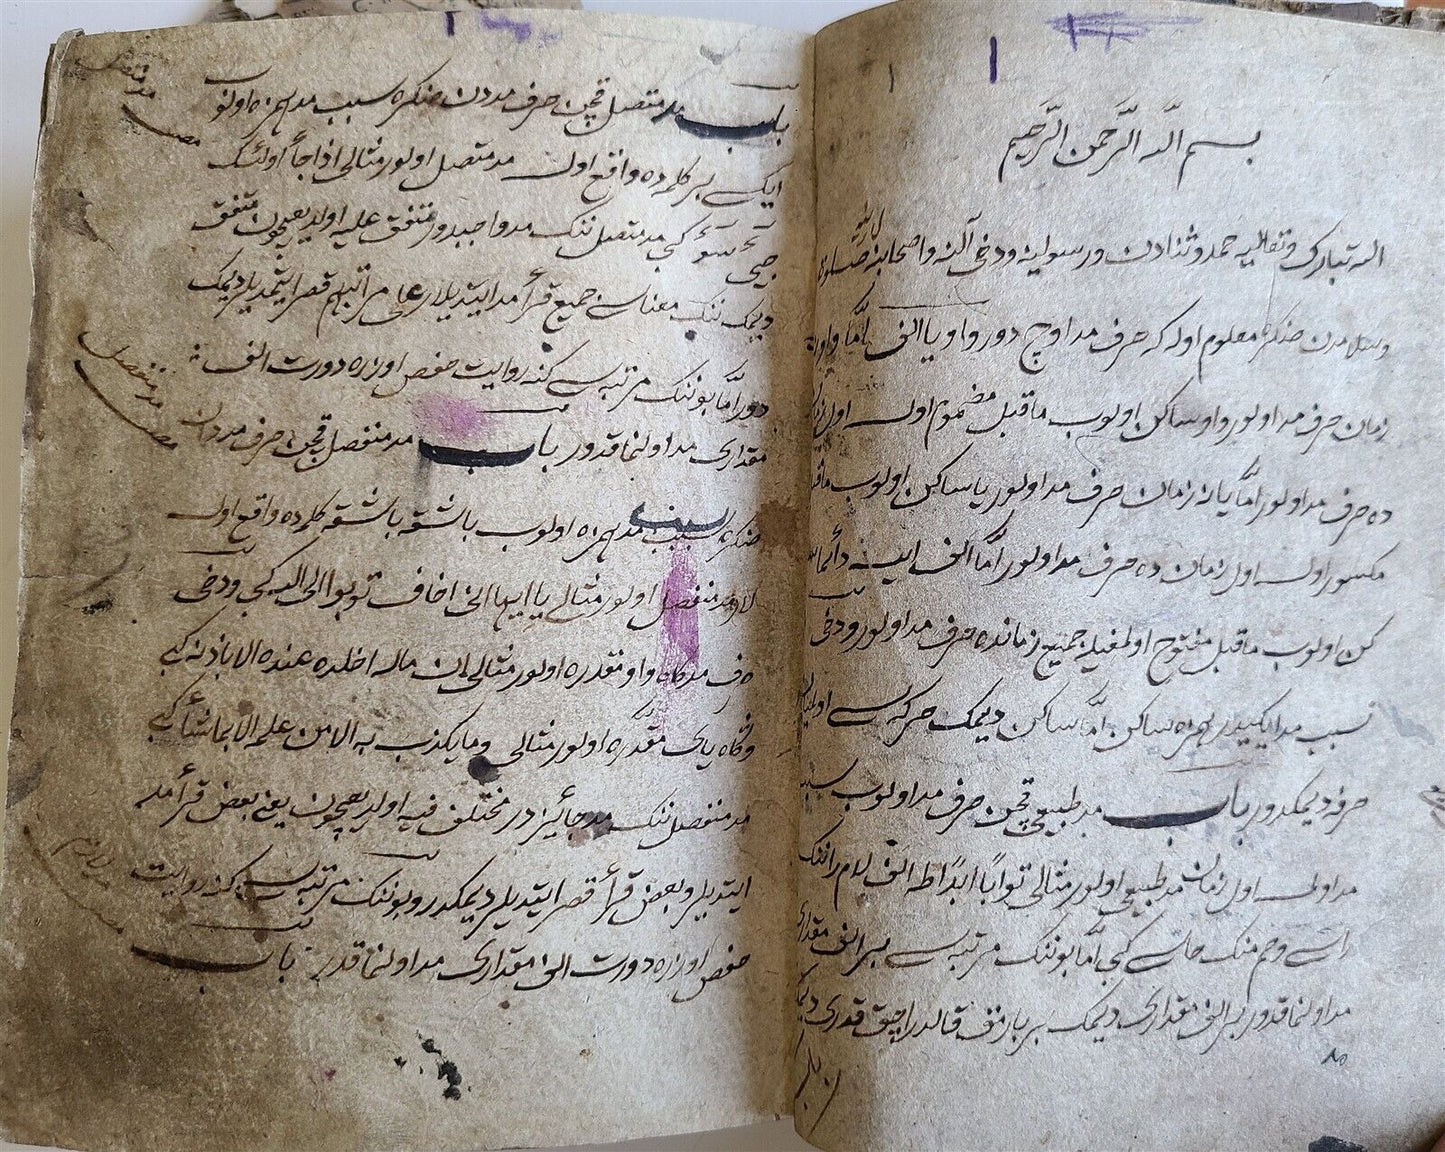 بسم الله الرحمن الرحيم
الله تبارك وتعاليه حمد وثنادن ورسولينه ودخى آلنه واصحابنه صلوة
وسلامدن صكره معلوم اوله كه حرف مد اوچ دور واو يا الف امّا واو نه
زمان حرف مد اولور واو ساكن اولوب ماقبل مضموم اولسه اول زماند
ده حرف مد اولور امّا يا نه زمان حرف مد اولور يا ساكن اولوب ماقبل
مكسور اولسه اول زمان ده حرف مد اولور امّا الف ايسه دائما سا
كن اولوب ماقبل مفتوح اولمغيله جميع زمانده حرف مد اولور ودخى
سبب مد ايكيدر همزه ساكن امّا ساكن ديمك حركه سى اولميان
حرفه ديمكدور باب مد طبيعى قچن حرف مد اولوب سبب
مد اولمسه اول زمان مد طبيعى اولور مثالى توابا ابدا طه الف لام رانك
راسى وحم نك حاسى كبى امّا بونك مرتبه سى بر الف مقدارى
مد اولنماقدور بر الف مقدارى ديمك بر بارمق قالدراجق قدرى ديمك
باب مد متصل قچن حرف مددن صكره سبب مد همزه اولو
ايكسى بر كلمه ده واقع اولسه مد متصل اولور مثالى اذا جاء اولئك
جىء سوء كبى مد متصل ننك مدى واجبدور متفق عليه اولديغيچون متفق
ديمك ننك معناسى جميع قرأ مد ايتديلار على مراتبهم قصر ايتمديلر ديمك
دور امّا بونك مرتبه سى كنه روايت حفص اوزره دورت الف
مقدارى مد اولنماقدور باب مد منفصل قچن حرف مددن
صكره سبب مد همزه اولوب باشقه باشقه كلمه ده واقع اولسه
مد منفصل اولور مثالى يا ايها انى اخاف توبوا الى الله كبى ودخى
حرف مد كاه واو مقدره اولور مثالى ان ماله اخلده عنده الا باذنه كبى
وكاه ياى مقدره اولور مثالى وما يكذب به الا من علمه الا بما شاء كبى
مد منفصل ننك مدى جائيزدر مختلف فيه اولديغيچون يعنى بعض قرأ مد
ايتديلر وبعض قرأ قصر ايتديلر ديمكدر وبونك مرتبه سى كنه روايت
حفص اوزره دورت الف مقدارى مد اولنماقدر باب
مد منفصل